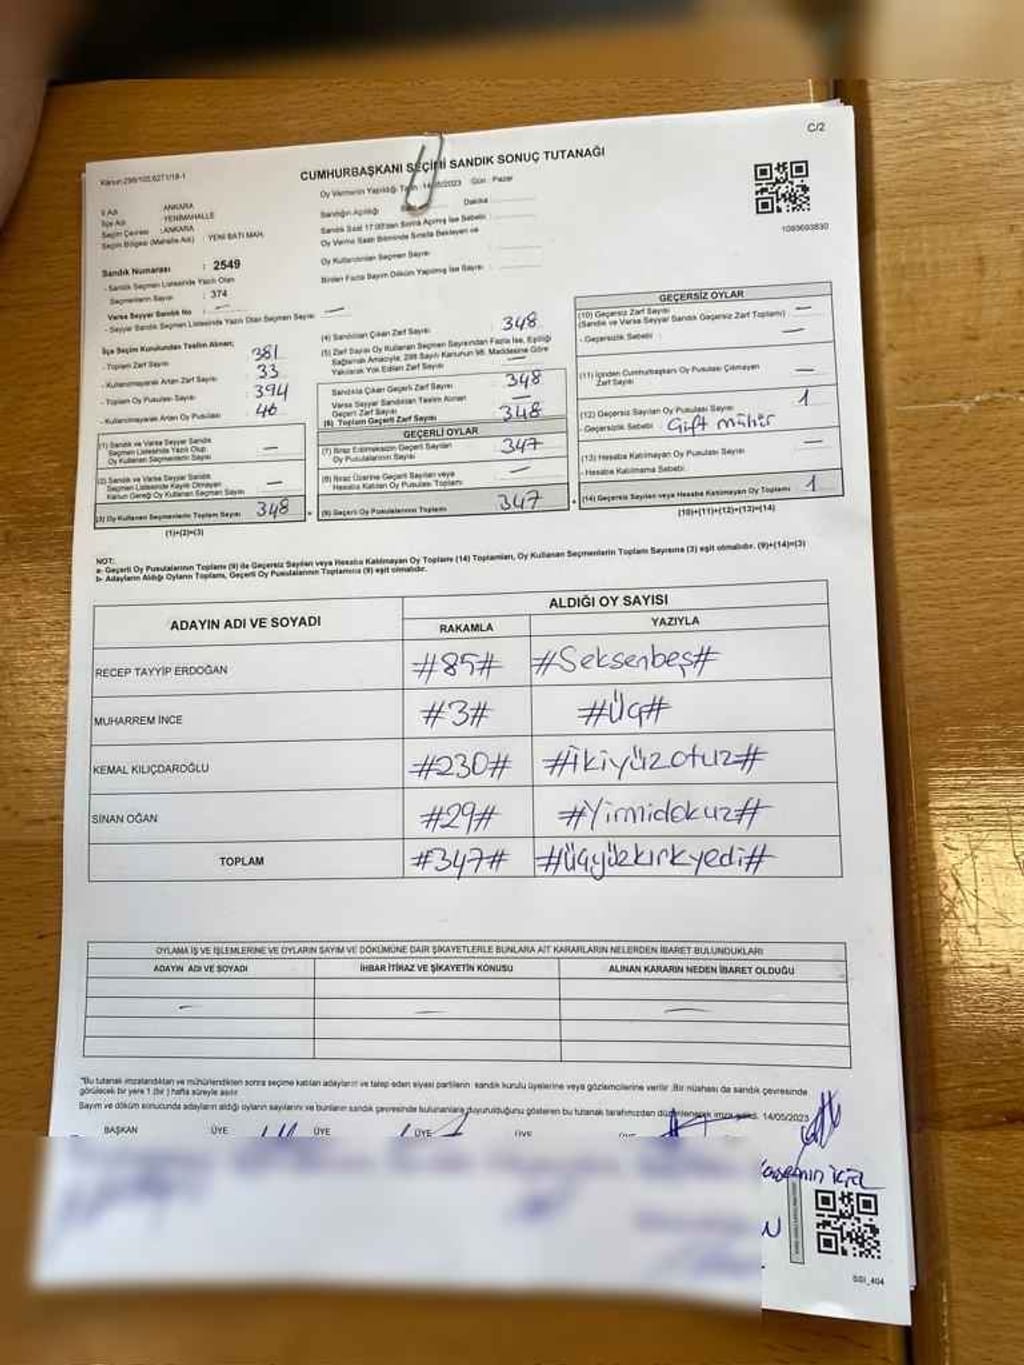 C/2
CUMHURBAŞKANI SEÇİMİ SANDIK SONUÇ TUTANAĞI
Kanun:298/105,6271/18-1
Oy Vermenin Yapıldığı Tarih : 14/05/2023 Gün : Pazar
İl Adı : ANKARA
İlçe Adı : YENİMAHALLE
Seçim Çevresi : ANKARA
Seçim Bölgesi (Mahalle Adı) : YENİ BATI MAH.
Sandığın Açıldığı Saat Dakika
Sandık Saat 17:00'den Sonra Açılmış İse Sebebi :
Oy Verme Saati Bitiminde Sırada Bekleyen ve
Oy Kullandırılan Seçmen Sayısı :
Birden Fazla Sayım Döküm Yapılmış İse Sayısı :
1093693830
Sandık Numarası : 2549
- Sandık Seçmen Listesinde Yazılı Olan
Seçmenlerin Sayısı : 374
Varsa Seyyar Sandık No : —
- Seyyar Sandık Seçmen Listesinde Yazılı Olan Seçmen Sayısı : —
İlçe Seçim Kurulundan Teslim Alınan;
- Toplam Zarf Sayısı : 381
- Kullanılmayarak Artan Zarf Sayısı : 33
- Toplam Oy Pusulası Sayısı : 394
- Kullanılmayarak Artan Oy Pusulası : 46
(1) Sandık ve Varsa Seyyar Sandık
Seçmen Listesinde Yazılı Olup
Oy Kullanan Seçmenlerin Sayısı —
(2) Sandık ve Varsa Seyyar Sandık
Seçmen Listesinde Kayıtlı Olmayan
Kanun Gereği Oy Kullanan Seçmen Sayısı —
(3) Oy Kullanan Seçmenlerin Toplam Sayısı 348
(1)+(2)=(3)
(4) Sandıktan Çıkan Zarf Sayısı : 348
(5) Zarf Sayısı Oy Kullanan Seçmen Sayısından Fazla İse, Eşitliği
Sağlamak Amacıyla, 298 Sayılı Kanunun 98. Maddesine Göre
Yakılarak Yok Edilen Zarf Sayısı : —
Sandıkta Çıkan Geçerli Zarf Sayısı 348
Varsa Seyyar Sandıktan Teslim Alınan
Geçerli Zarf Sayısı —
(6) Toplam Geçerli Zarf Sayısı 348
GEÇERLİ OYLAR
(7) İtiraz Edilmeksizin Geçerli Sayılan
Oy Pusulalarının Sayısı 347
(8) İtiraz Üzerine Geçerli Sayılan veya
Hesaba Katılan Oy Pusulası Toplamı —
(9) Geçerli Oy Pusulalarının Toplamı 347
GEÇERSİZ OYLAR
(10) Geçersiz Zarf Sayısı
(Sandık ve Varsa Seyyar Sandık Geçersiz Zarf Toplamı) —
- Geçersizlik Sebebi : —
(11) İçinden Cumhurbaşkanı Oy Pusulası Çıkmayan
Zarf Sayısı —
(12) Geçersiz Sayılan Oy Pusulası Sayısı 1
- Geçersizlik Sebebi : Çift mühür
(13) Hesaba Katılmayan Oy Pusulası Sayısı —
- Hesaba Katılmama Sebebi:
(14) Geçersiz Sayılan veya Hesaba Katılmayan Oy Toplamı 1
(10)+(11)+(12)+(13)=(14)
NOT:
a- Geçerli Oy Pusulalarının Toplamı (9) ile Geçersiz Sayılan veya Hesaba Katılmayan Oy Toplamı (14) Toplamları, Oy Kullanan Seçmenlerin Toplam Sayısına (3) eşit olmalıdır. (9)+(14)=(3)
b- Adayların Aldığı Oyların Toplamı, Geçerli Oy Pusulalarının Toplamına (9) eşit olmalıdır.
ADAYIN ADI VE SOYADI
ALDIĞI OY SAYISI
RAKAMLA YAZIYLA
RECEP TAYYİP ERDOĞAN #85# #Seksenbeş#
MUHARREM İNCE #3# #Üç#
KEMAL KILIÇDAROĞLU #230# #İkiyüzotuz#
SİNAN OĞAN #29# #Yirmidokuz#
TOPLAM #347# #Üçyüzkırkyedi#
OYLAMA İŞ VE İŞLEMLERİNE VE OYLARIN SAYIM VE DÖKÜMÜNE DAİR ŞİKAYETLERLE BUNLARA AİT KARARLARIN NELERDEN İBARET BULUNDUKLARI
ADAYIN ADI VE SOYADI İHBAR İTİRAZ VE ŞİKAYETİN KONUSU ALINAN KARARIN NEDEN İBARET OLDUĞU
— — —
"Bu tutanak imzalandıktan ve mühürlendikten sonra seçime katılan adayların ve talep eden siyasi partilerin sandık kurulu üyelerine veya gözlemcilerine verilir. Bir nüshası da sandık çevresinde
görülecek bir yere 1 (bir) hafta süreyle asılır.
Sayım ve döküm sonucunda adayların aldığı oyların sayılarını ve bunların sandık çevresinde bulunanlara duyurulduğunu gösteren bu tutanak tarafımızdan düzenlenerek imza edildi. 14/05/2023
BAŞKAN ÜYE ÜYE ÜYE ÜYE
SSI_404